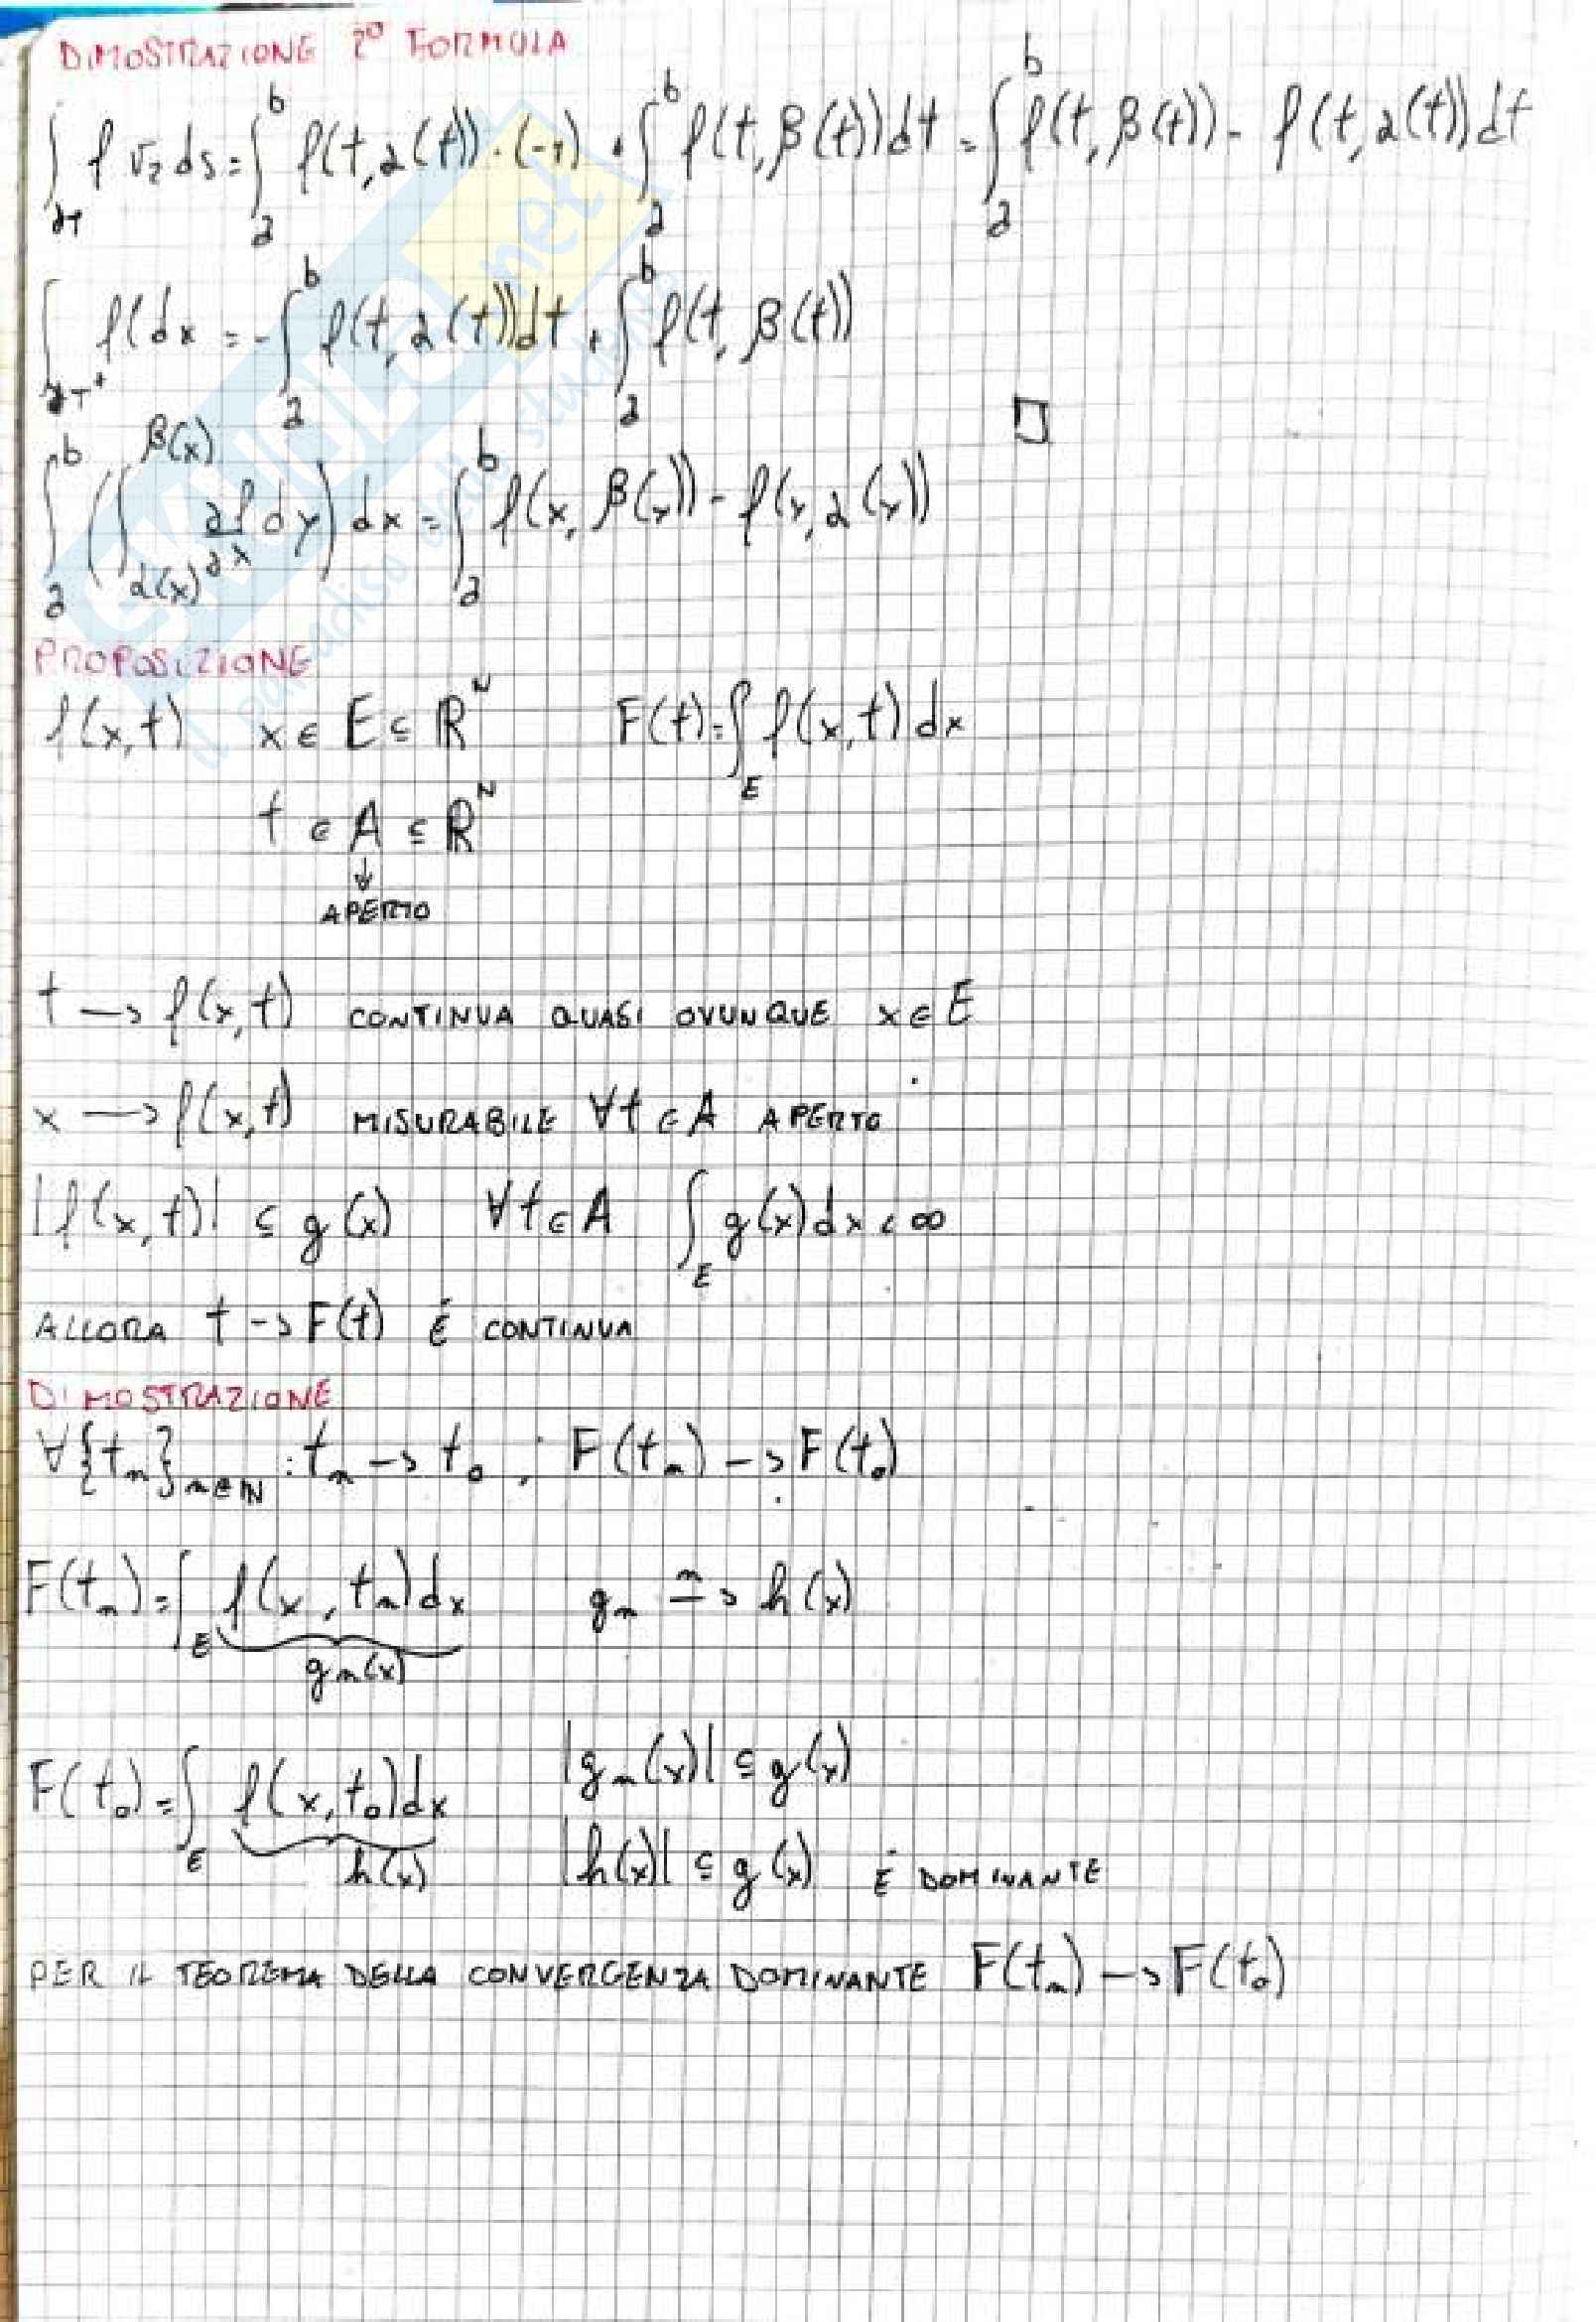 DIMOSTRAZIONE 2° FORMULA
∫_∂T f ν₂ ds = ∫_a^b f(t, α(t))·(-1) + ∫_a^b f(t, β(t))dt = ∫_a^b f(t, β(t)) - f(t, α(t))dt
∫_∂T⁺ f dx = -∫_a^b f(t, α(t))dt + ∫_a^b f(t, β(t))
∫_a^b (∫_α(x)^β(x) ∂f/∂x dy) dx = ∫_a^b f(x, β(x)) - f(x, α(x)) □
PROPOSIZIONE
f(x,t) x ∈ E ⊆ ℝ^N F(t) = ∫_E f(x,t) dx
t ∈ A ⊆ ℝ^N
↓
APERTO
t → f(x,t) CONTINUA QUASI OVUNQUE x ∈ E
x → f(x,t) MISURABILE ∀t ∈ A APERTO
|f(x,t)| ≤ g(x) ∀t ∈ A ∫_E g(x)dx < ∞
ALLORA t → F(t) É CONTINUA
DIMOSTRAZIONE
∀{t_n}_n∈ℕ : t_n → t_0 ; F(t_n) → F(t_0)
F(t_n) = ∫_E f(x, t_n)dx g_n →^n h(x)
g_n(x)
F(t_0) = ∫_E f(x, t_0)dx |g_n(x)| ≤ g(x)
h(x) |h(x)| ≤ g(x) É DOMINANTE
PER IL TEOREMA DELLA CONVERGENZA DOMINANTE F(t_n) → F(t_0)
SKUOLA.net
il paradiso dello studente